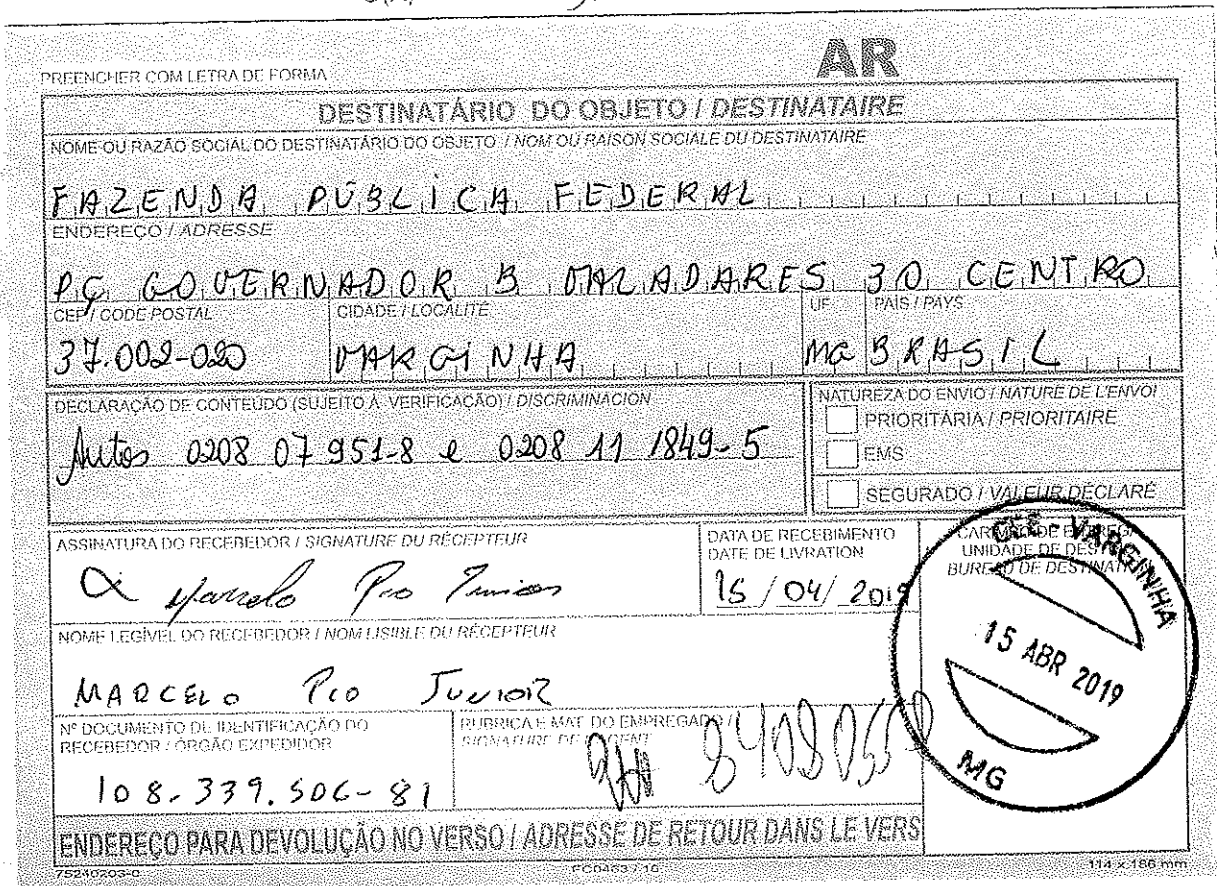 AR
PREENCHER COM LETRA DE FORMA
DESTINATÁRIO DO OBJETO / DESTINATAIRE
NOME OU RAZÃO SOCIAL DO DESTINATÁRIO DO OBJETO / NOM OU RAISON SOCIALE DU DESTINATAIRE
FAZENDA PÚBLICA FEDERAL
ENDEREÇO / ADRESSE
PÇ GOVERNADOR B VALADARES 30 CENTRO
CEP / CODE POSTAL CIDADE / LOCALITÉ UF PAÍS / PAYS
37.002-020 VARGINHA MG BRASIL
DECLARAÇÃO DE CONTEÚDO (SUJEITO À VERIFICAÇÃO) / DISCRIMINACION
Autos 0208 07 951-8 e 0208 11 1849-5
NATUREZA DO ENVIO / NATURE DE L'ENVOI
PRIORITÁRIA / PRIORITAIRE
EMS
SEGURADO / VALEUR DÉCLARÉ
ASSINATURA DO RECEBEDOR / SIGNATURE DU RÉCEPTEUR
Marcelo Pio Junior
DATA DE RECEBIMENTO
DATE DE LIVRATION
15/04/2019
CARIMBO DE
UNIDADE DE
BUREAU DE
CEE - VARGINHA
15 ABR 2019
MG
NOME LEGÍVEL DO RECEBEDOR / NOM LISIBLE DU RÉCEPTEUR
MARCELO Pio JUNIOR
Nº DOCUMENTO DE IDENTIFICAÇÃO DO
RECEBEDOR / ÓRGÃO EXPEDIDOR
108.339.506-81
RUBRICA E MAT. DO EMPREGADO /
SIGNATURE DE L'AGENT
ENDEREÇO PARA DEVOLUÇÃO NO VERSO / ADRESSE DE RETOUR DANS LE VERS
75240203-0 FC0463 / 16 114 x 186 mm